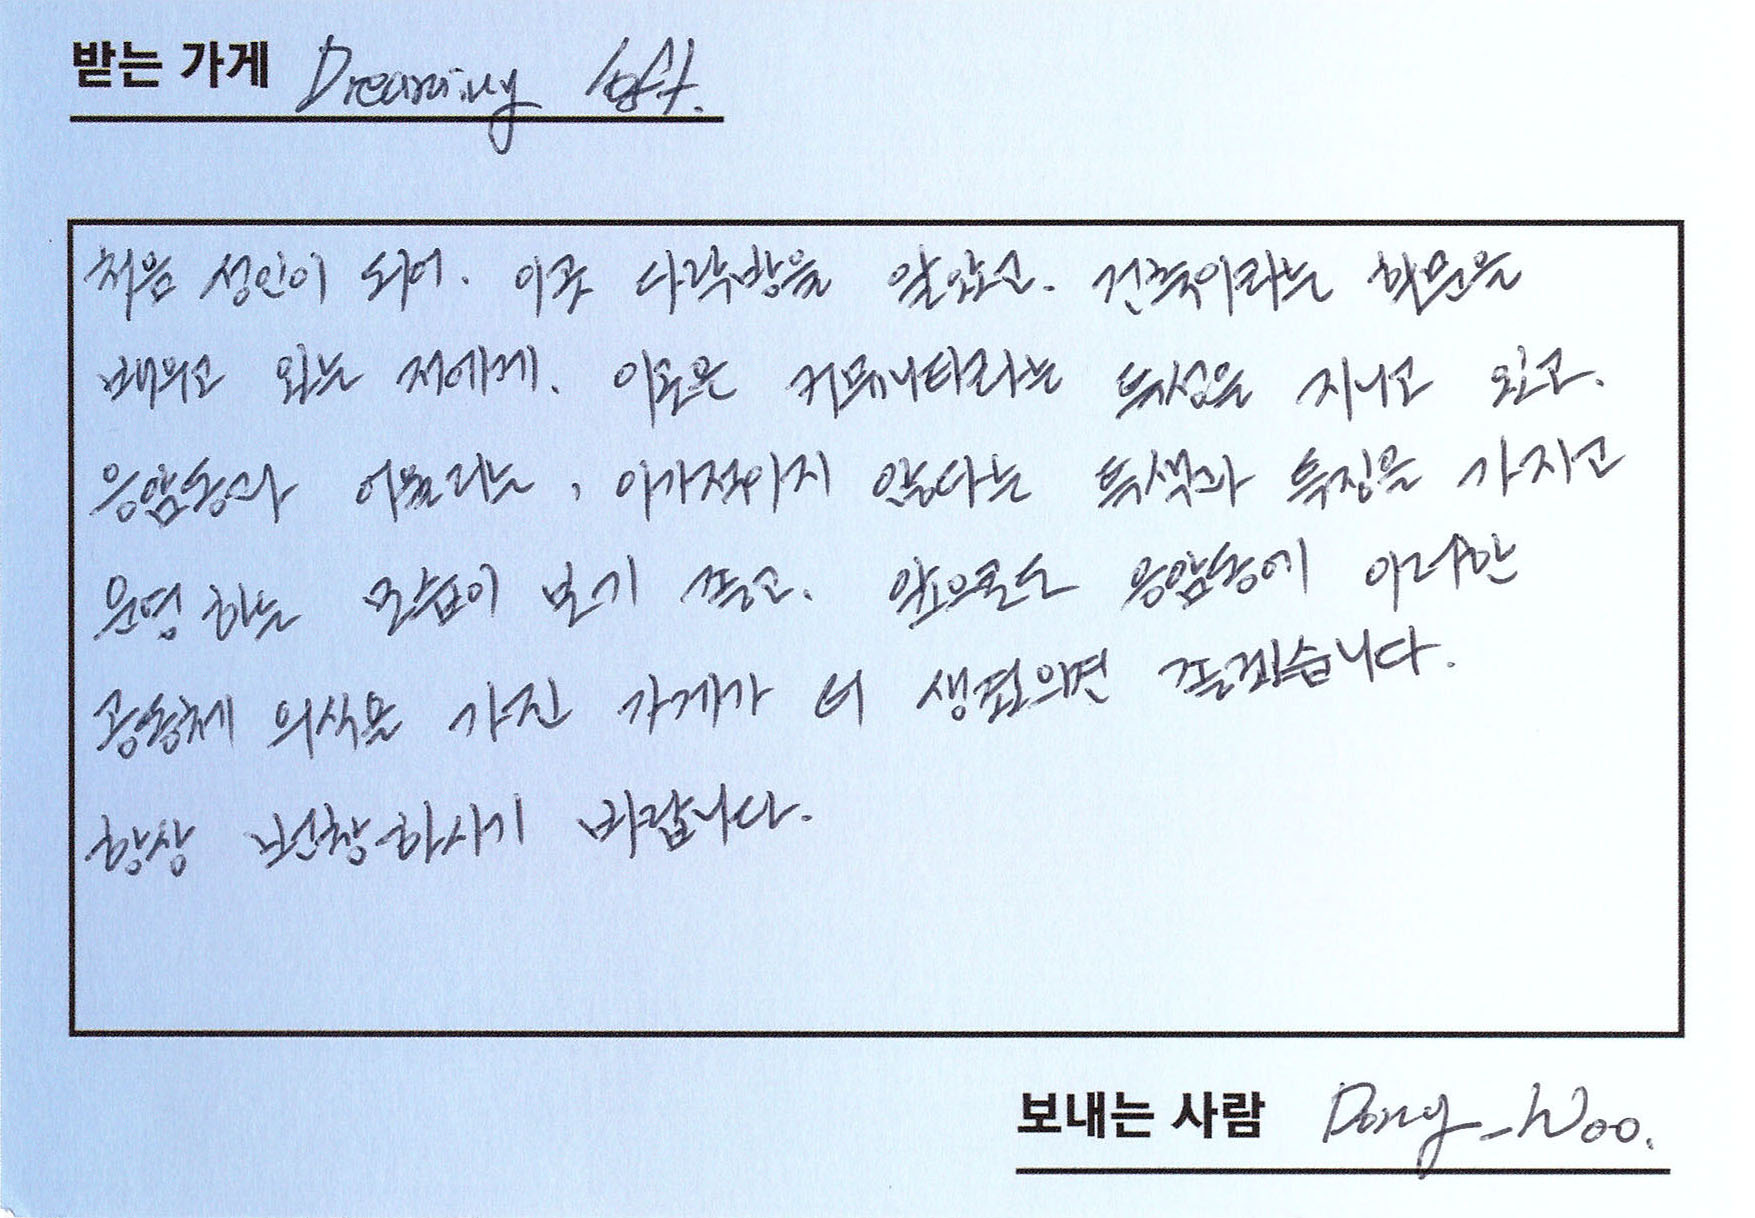 받는 가게 Dreaming loft.
처음 성인이 되어. 이곳 다락방을 알았고. 건축이라는 학문을
배우고 있는 저에게. 이곳은 커뮤니티라는 특성을 지니고 있고.
응암동과 어울리는, 이가적이지 않다는 특색과 특징을 가지고
운영하는 모습이 보기 좋고. 앞으로도 응암동에 이러한
공동체 의식을 가진 가게가 더 생겼으면 좋겠습니다.
항상 번창하시기 바랍니다.
보내는 사람 Dong_Woo.